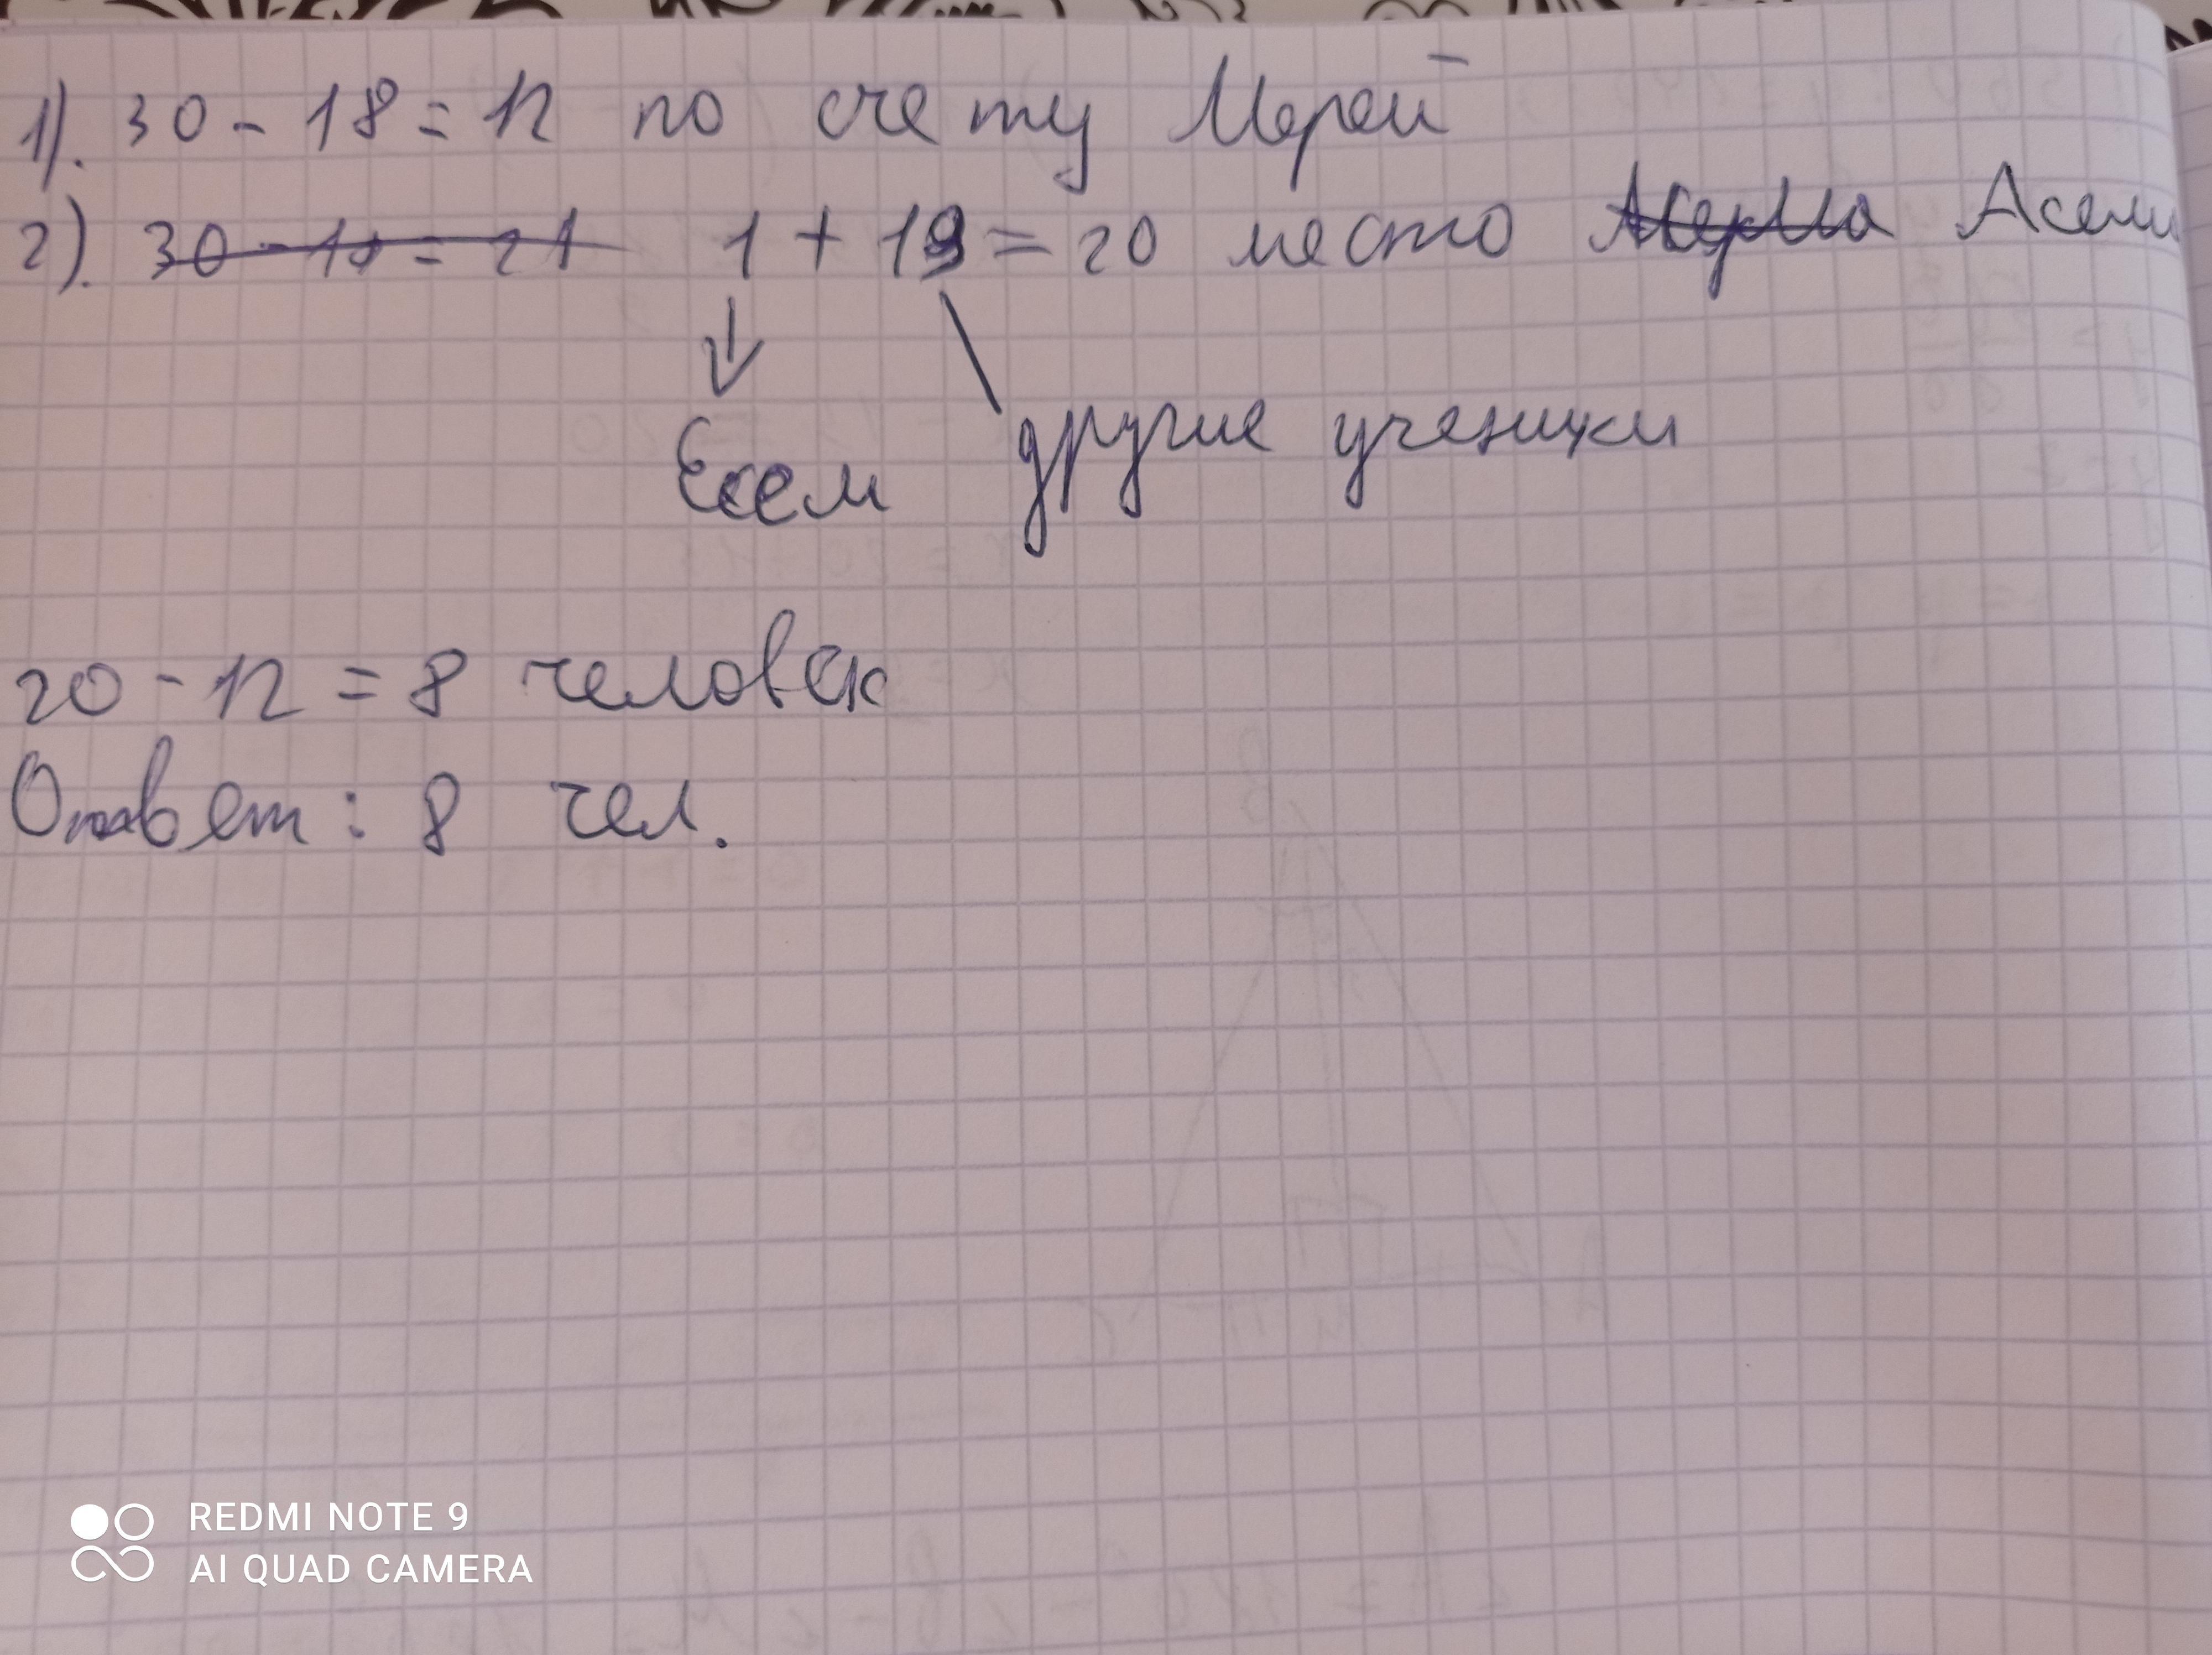 1). 30 - 18 = 12 по счету Мерей
2). 30 - 19 = 21 1 + 19 = 20 место Асели
Есем другие ученики
20 - 12 = 8 человек
Ответ: 8 чел.
REDMI NOTE 9
AI QUAD CAMERA